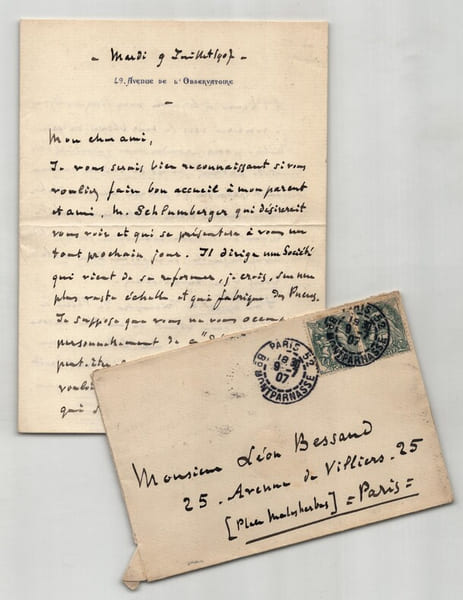 - Mardi 9 Juillet 1907 -
49, AVENUE DE L'OBSERVATOIRE
Mon cher ami,
Je vous serais bien reconnaissant si vous
vouliez faire bon accueil à mon parent
et ami, M. Schlumberger qui désirerait
vous voir et qui se présentera à vous un
tout prochain jour. Il dirige une Société
qui vient de se reformer, je crois, sur une
plus vaste échelle et qui fabrique des Pneus.
Je suppose que vous ne vous
personnellement de
peut-être
qui
PARIS 52
18
9 - 7
07
Bd MONTPARNASSE
PARIS 52
18
9
07
Bd MONTPARNASSE
Monsieur Léon Bessand
25 - Avenue de Villiers - 25
[Place Malesherbes] = Paris =